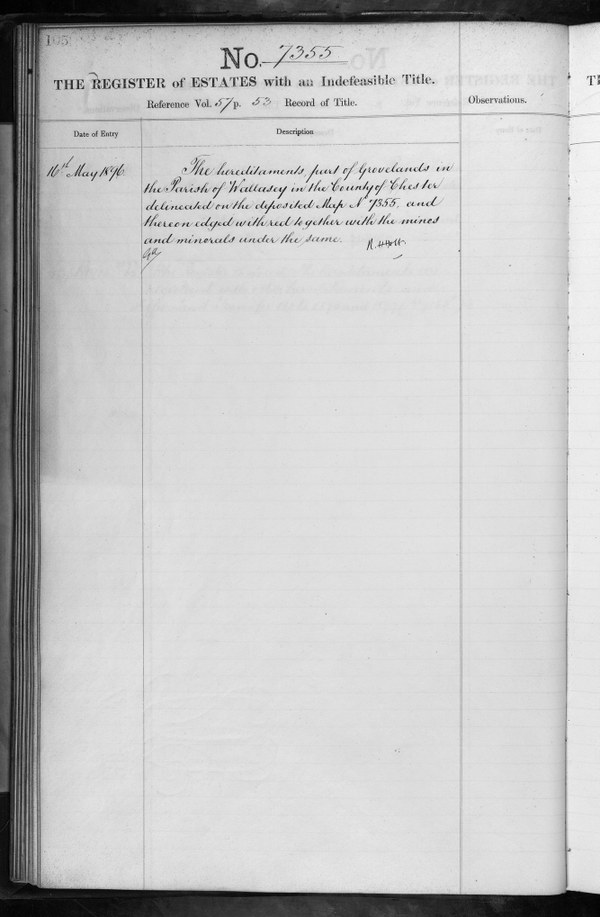 195
No. 7355
THE REGISTER of ESTATES with an Indefeasible Title.
Reference Vol. 57 p. 53 Record of Title.
Observations.
Date of Entry
Description
16th May 1896.
The hereditaments part of Grovelands in
the Parish of Wallasey in the County of Chester
delineated on the deposited Map No 7355. and
thereon edged with red together with the mines
and minerals under the same.